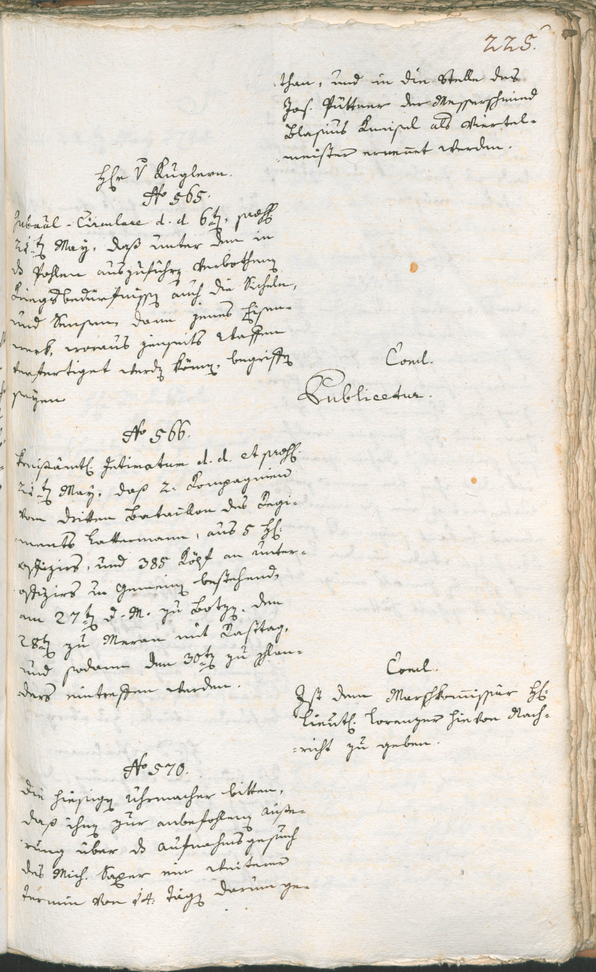 225.
than, und in die Stelle des
Jos. Püttner der Messerschmied
Blasius Kneisel als Viertel-
meister ernennt werden.
Hr. v Kuglern.
No 565.
Gubeal-Circulare d. d. 6t, praes
21t May, daß unter den in
Pohlen auszuführen verbothenen
Kriegsbedürfnissen auch die Sicheln,
und Sensen, dann jenes Eisen-
werk, woraus jenseits Waffen
verfertiget werden können, begriffen
seyen
Concl.
Publicetur.
No 566.
Kreisämtl. Intimatum d. d. et praes.
21t May, daß 2. Kompagnien
vom dritten Bataillon des Regi-
ments Lattermann, aus 5 H.
offiziers, und 385 Köpf an unter-
offiziers und Gemeinen bestehend,
am 27t d. M. zu Botzen, den
28t zu Meran mit Rasttag,
und sodann den 30t zu Schlan-
ders eintreffen werden.
Concl.
Ist dem Marschkommissär H.
Lieut. Lorenzer hievon Nach-
richt zu geben.
No 570.
Die hiesigen Uhrmacher bitten,
daß ihnen zur anbefohlenen Äuße-
rung über das Aufnahmsgesuch
des Mich. Saxer ein weiterer
Termin von 14 Tägen darum ge-